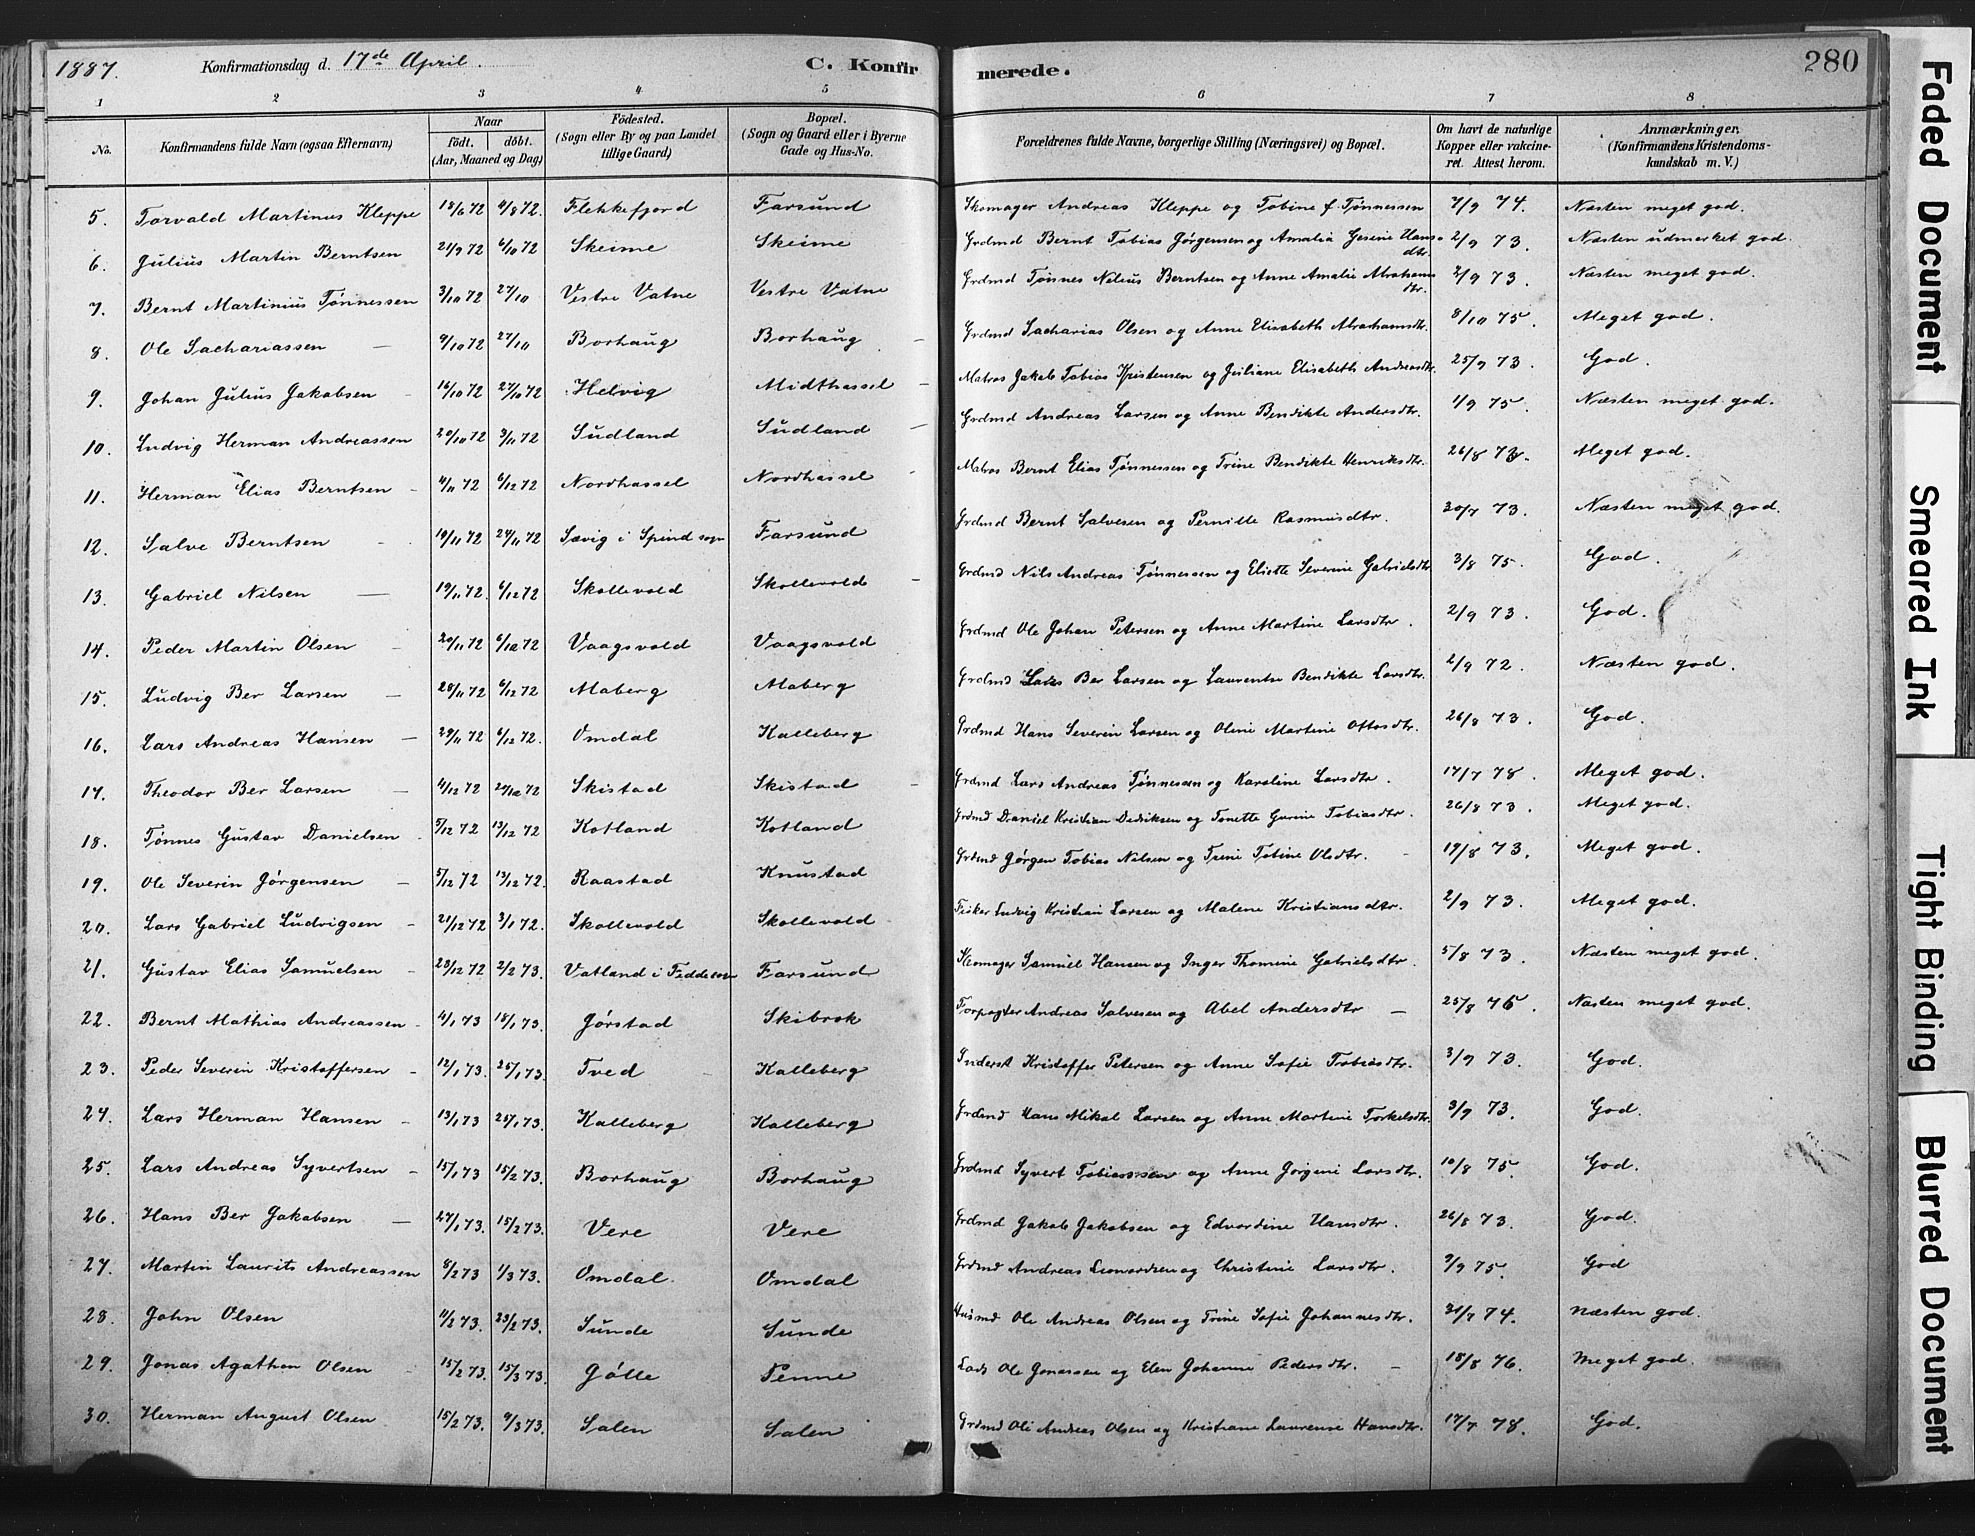 1887. Konfirmationsdag d. 17de April. C. Konfirmerede. 280
1 2 3 4 5 6 7 8
No. Konfirmandens fulde Navn (ogsaa Efternavn) Naar født. døbt. (Aar, Maaned og Dag) Fødested. (Sogn eller By og paa Landet tillige Gaard) Bopæl. (Sogn og Gaard eller i Byerne Gade og Hus-No. Forældrenes fulde Navne, borgerlige Stilling (Næringsvei) og Bopæl. Om havt de naturlige Kopper eller vakcineret. Attest herom. Anmærkninger. (Konfirmandens Kristendomskundskab m. V.)
5. Torvald Martinus Kleppe 18/6 72 4/8 72. Flekkefjord Farsund Skomager Andreas Kleppe og Tobine f. Tønnessen 7/9 74. Næsten meget god.
6. Julius Martin Berntsen 21/9 72 6/10 72 Skeime Skeime Grdmd Bernt Tobias Jørgensen og Amalia Gesine Hansdtr. 2/9 73. Næsten udmerket god.
7. Bernt Martinius Tønnessen 3/10 72 27/10 Vestre Vatne Vestre Vatne Grdmd Tønnes Nelius Berntsen og Anne Amalie Abrahamsdtr. 2/9 73. Næsten meget god.
8. Ole Sachariassen 9/10 72 27/10 Borhaug Borhaug Grdmd Sacharias Olsen og Anne Elisabeth Abrahamsdtr. 8/10 75. Meget god.
9. Johan Julius Jakobsen 16/10 72 27/10 72 Helvig Midthassel Matros Jakob Tobias Kristensen og Juliane Elisabeth Andreasdtr. 25/9 73. God.
10. Ludvig Herman Andreassen 20/10 72 3/11 72 Sudland Sudland Grdmd Andreas Larsen og Anne Bendikte Andersdtr. 1/9 75. Næsten meget god.
11. Herman Elias Berntsen 4/11 72 6/12 72 Nordhassel Nordhassel Matros Bernt Elias Tønnessen og Trine Bendikte Henriksdtr. 26/8 73. Meget god.
12. Salve Berntsen 10/11 72 24/11 72 Sævig i Spind sogn Farsund Grdmd Bernt Salvesen og Pernille Rasmusdtr. 20/7 73. Næsten meget god.
13. Gabriel Nilsen 19/11 72. 6/12 72 Skollevold Skollevold Grdmd Nils Andreas Tønnessen og Eliette Severine Gabrielsdtr 3/8 75. God.
14. Peder Martin Olsen 20/11 72 6/12 72 Vaagsvold Vaagsvold Grdmd Ole Johan Petersen og Anne Martine Larsdtr. 2/9 73. God.
15. Ludvig Ber Larsen 28/11 72 6/12 72 Maberg Maberg Grdmd Lars Ber Larsen og Laurentse Bendikte Larsdtr. 2/9 72. Næsten god.
16. Lars Andreas Hansen 29/11 72 6/12 72. Omdal Kalleberg Grdmd Hans Severin Larsen og Oline Martine Ottosdtr. 26/8 73. God.
17. Theodor Ber Larsen 4/12 72 27/12 72 Skistad Skistad Grdmd Lars Andreas Tønnessen og Karoline Larsdtr. 17/7 78. Meget god.
18. Tønnes Gustav Danielsen 5/12 72 13/12 72 Kotland Kotland Grdmd Daniel Kristian Dedriksen og Tonette Gurine Tobiasdtr. 26/8 73. Meget god.
19. Ole Severin Jørgensen 5/12 72 13/12 72. Raastad Knustad Grdmd Jørgen Tobias Nilsen og Trine Tobine Olsdtr. 19/8 73. Meget god.
20. Lars Gabriel Ludvigsen 21/12 72 3/1 72. Skollevold Skollevold Fisker Ludvig Kristian Larsen og Malene Kristiansdtr. 2/9 73. Meget god.
21. Gustav Elias Samuelsen 23/12 72 2/2 73. Vatland i Feddesogn Farsund Skomager Samuel Hansen og Inger Thomine Gabrielsdtr. 5/8 73. Næsten meget god.
22. Bernt Mathias Andreassen 4/1 73 18/1 73. Jørstad Skibrok Forpagter Andreas Salvesen og Abel Andersdtr 25/8 76. Næsten meget god.
23. Peder Severin Kristoffersen 12/1 73 25/1 73. Tved Kalleberg Inderst Kristoffer Petersen og Anne Sofie Tobiasdtr. 3/9 73. God.
24. Lars Herman Hansen 13/1 73 25/1 73. Kalleberg Kalleberg Grdmd Hans Mikal Larsen og Anne Martine Torkelsdtr. 3/9 73. God.
25. Lars Andreas Syvertsen 15/1 73 15/2 73. Borhaug Borhaug Grdmd Syvert Tobiassen og Anne Jørgine Larsdtr. 10/8 75. God.
26. Hans Ber Jakobsen 27/1 73. 15/2 73. Vere Vere Grdmd Jakob Jakobsen og Edvardine Hansdtr. 26/8 73. God.
27. Martin Laurits Andreassen 8/2 73 1/3 73. Omdal. Omdal Grdmd Andreas Leonardsen og Christine Larsdtr. 9/9 75. God
28. John Olsen 11/2 73. 23/2 73. Sunde Sunde Husmd Ole Andreas Olsen og Trine Sofie Johannesdtr. 31/7 74. Næsten god.
29. Jonas Agathon Olsen 15/2 73. 15/3 73. Jølle Penne Lods Ole Jonassen og Elen Johanne Pedersdtr. 18/8 76. Meget god.
30. Herman August Olsen 15/2 73. 9/3 73. Salen Salen Grdmd Ole Andreas Olsen og Kristiane Laurense Hansdtr. 17/7 78. God.
Faded Document
Smeared Ink
Tight Binding
Blurred Document